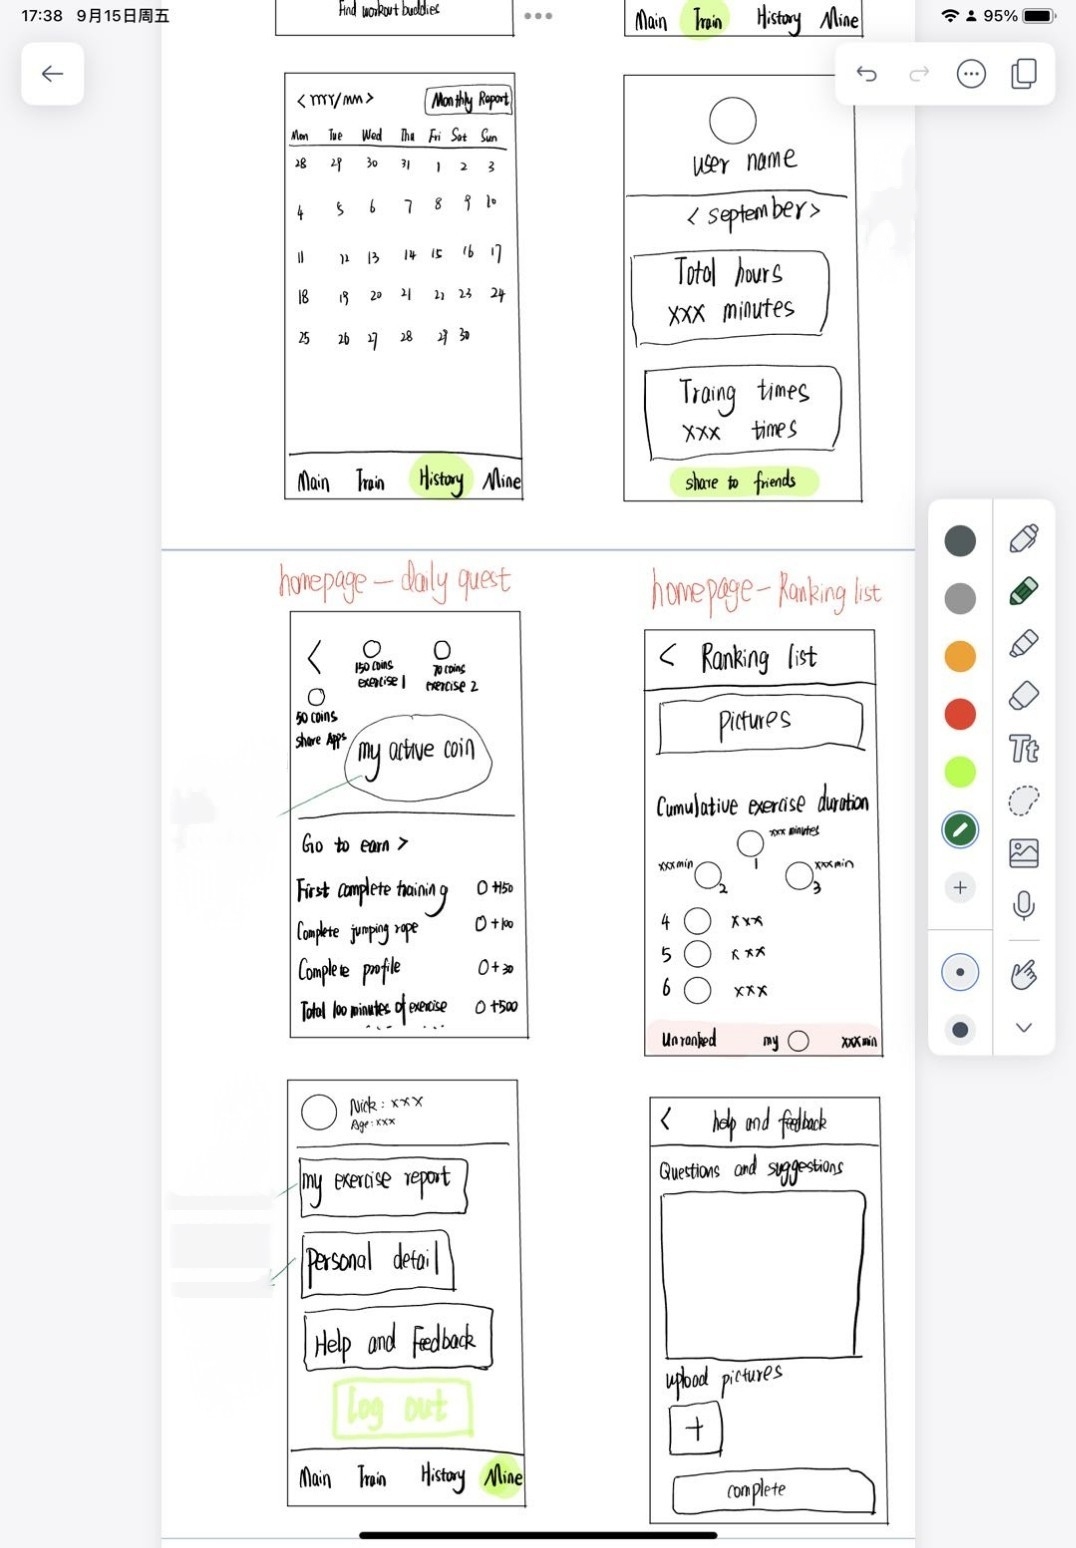 17:38 9月15日周五
95%
Find workout buddies
Main Train History Mine
< mm/nn >
Monthly Report
Mon Tue Wed Thu Fri Sat Sun
28 29 30 31 1 2 3
4 5 6 7 8 9 10
11 12 13 14 15 16 17
18 19 20 21 22 23 24
25 26 27 28 29 30
Main Train History Mine
user name
< september >
Total hours
xxx minutes
Traing times
xxx times
share to friends
homepage — daily quest
<
150 coins
exercise 1
70 coins
exercise 2
50 coins
share Apps
my active coin
Go to earn >
First complete training 0 +150
Complete jumping rope 0 +100
Complete profile 0 + 30
Total 100 minutes of exercise 0 +500
homepage — Ranking list
< Ranking list
Pictures
Cumulative exercise duration
xxx minutes
1
xxx min
2
xxx min
3
4 xxx
5 xxx
6 xxx
Unranked my xxx min
Nick : xxx
Age : xxx
my exercise report
Personal detail
Help and Feedback
log out
Main Train History Mine
< help and feedback
Questions and suggestions
upload pictures
+
complete
Tt